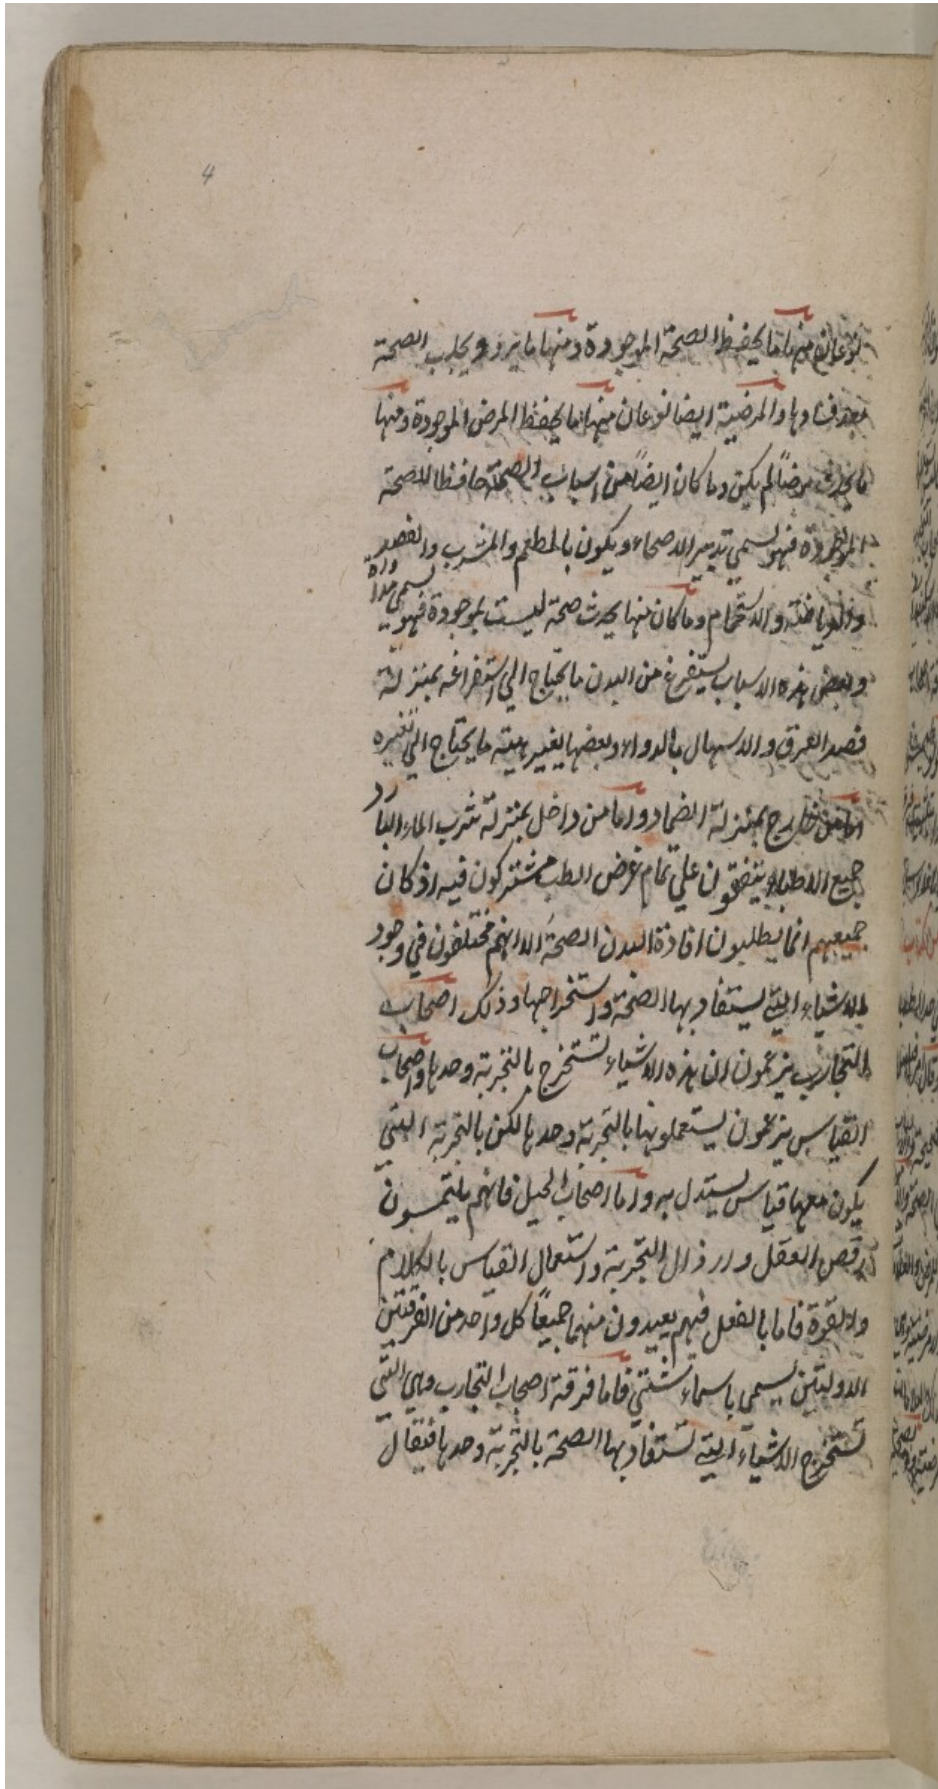 4
نوعان منها ما يحفظ الصحة الموجودة ومنها ما يرد ويجلب الصحة
بعد فسادها والمرضية ايضا نوعان منها ما يحفظ المرض الموجودة ومنها
ما يحدث مرضاً لم يكن وما كان ايضاً من اسباب الصحة حافظا للصحة
الموجودة فهو يسمى تدبير الاصحاء ويكون بالمطعم والمشرب والفصد
والرياضة والاستحمام وما كان منها يحدث صحة ليست بموجودة فهو يسمى مداواة
وبعض هذه الاسباب يستفرغ من البدن ما يحتاج الي استفراغه بمنزلة
فصد العرق والاسهال بالدواء وبعضها يغير هيئة ما يحتاج الي تغيره
اما من خارج بمنزلة الضماد واما من داخل بمنزلة شرب الماء البارد
جميع الاطباء يتفقون علي تمام غرض الطب مشتركون فيه اذ كان
جميعهم انما يطلبون افادة البدن الصحة الا انهم مختلفون في وجود
الاشياء التي يستفاد بها الصحة واستخراجها وذلك اصحاب
التجارب يزعمون ان هذه الاشياء تستخرج بالتجربة وحدها واصحاب
القياس يزعمون يستعملونها بالتجربة وحدها لكن بالتجربة التي
يكون معها قياس يستدل به واما اصحاب الحيل فانهم يلتمسون
رفض العقل وارذال التجربة واستعمال القياس بالكلام
ولا لقوة فاما بالفعل فهم بعيدون منهما جميعاً كل واحد من الفرقتين
الاوليتين يسمي باسماء شتي فاما فرقة اصحاب التجارب وهي التي
تستخرج الاشياء التي تستفاد بها الصحة بالتجربة وحدها فيقال